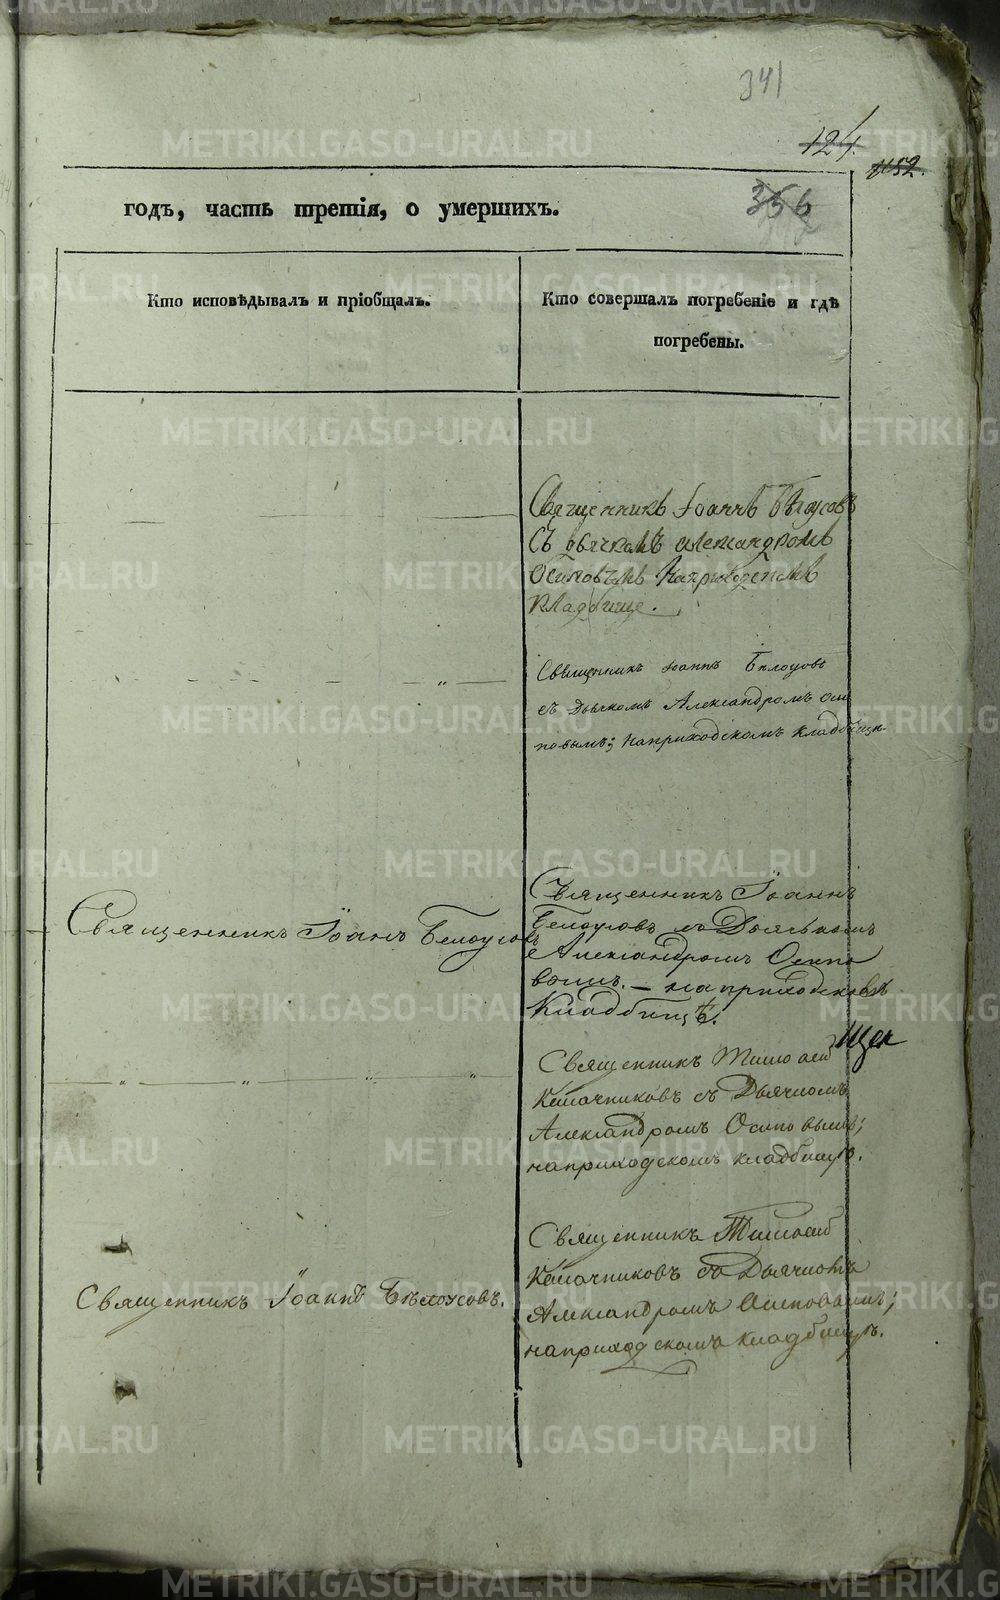 341
124.
1152.
356
годъ, часть третія, о умершихъ.
Кто исповѣдывалъ и пріобщалъ.
Кто совершалъ погребеніе и гдѣ
погребены.
Священникъ Іоаннъ Бѣлоусовъ
Съ дьячкомъ Александромъ
Осиповымъ На приходскомъ
кладбище.
Священникъ Іоаннъ Бѣлоусовъ
съ Дьячкомъ Александромъ Оси
повымъ; на приходскомъ кладбищѣ
Священникъ Іоаннъ Белоусовъ
Священникъ Іоаннъ
Белоусовъ съ Дьячькомъ
Александромъ Осипо
вымъ. – на приходскомъ
Кладбищѣ.
Щен
Священникъ Тимоѳей
Калачниковъ съ Дьячкомъ
Александромъ Осиповымъ;
на приходскомъ кладбищѣ.
Священникъ Іоаннъ Бѣлоусовъ.
Священникъ Тимоѳей
Калачниковъ съ Дьячкомъ
Александромъ Осиповымъ;
на приходскомъ кладбищѣ.
METRIKI.GASO-URAL.RU